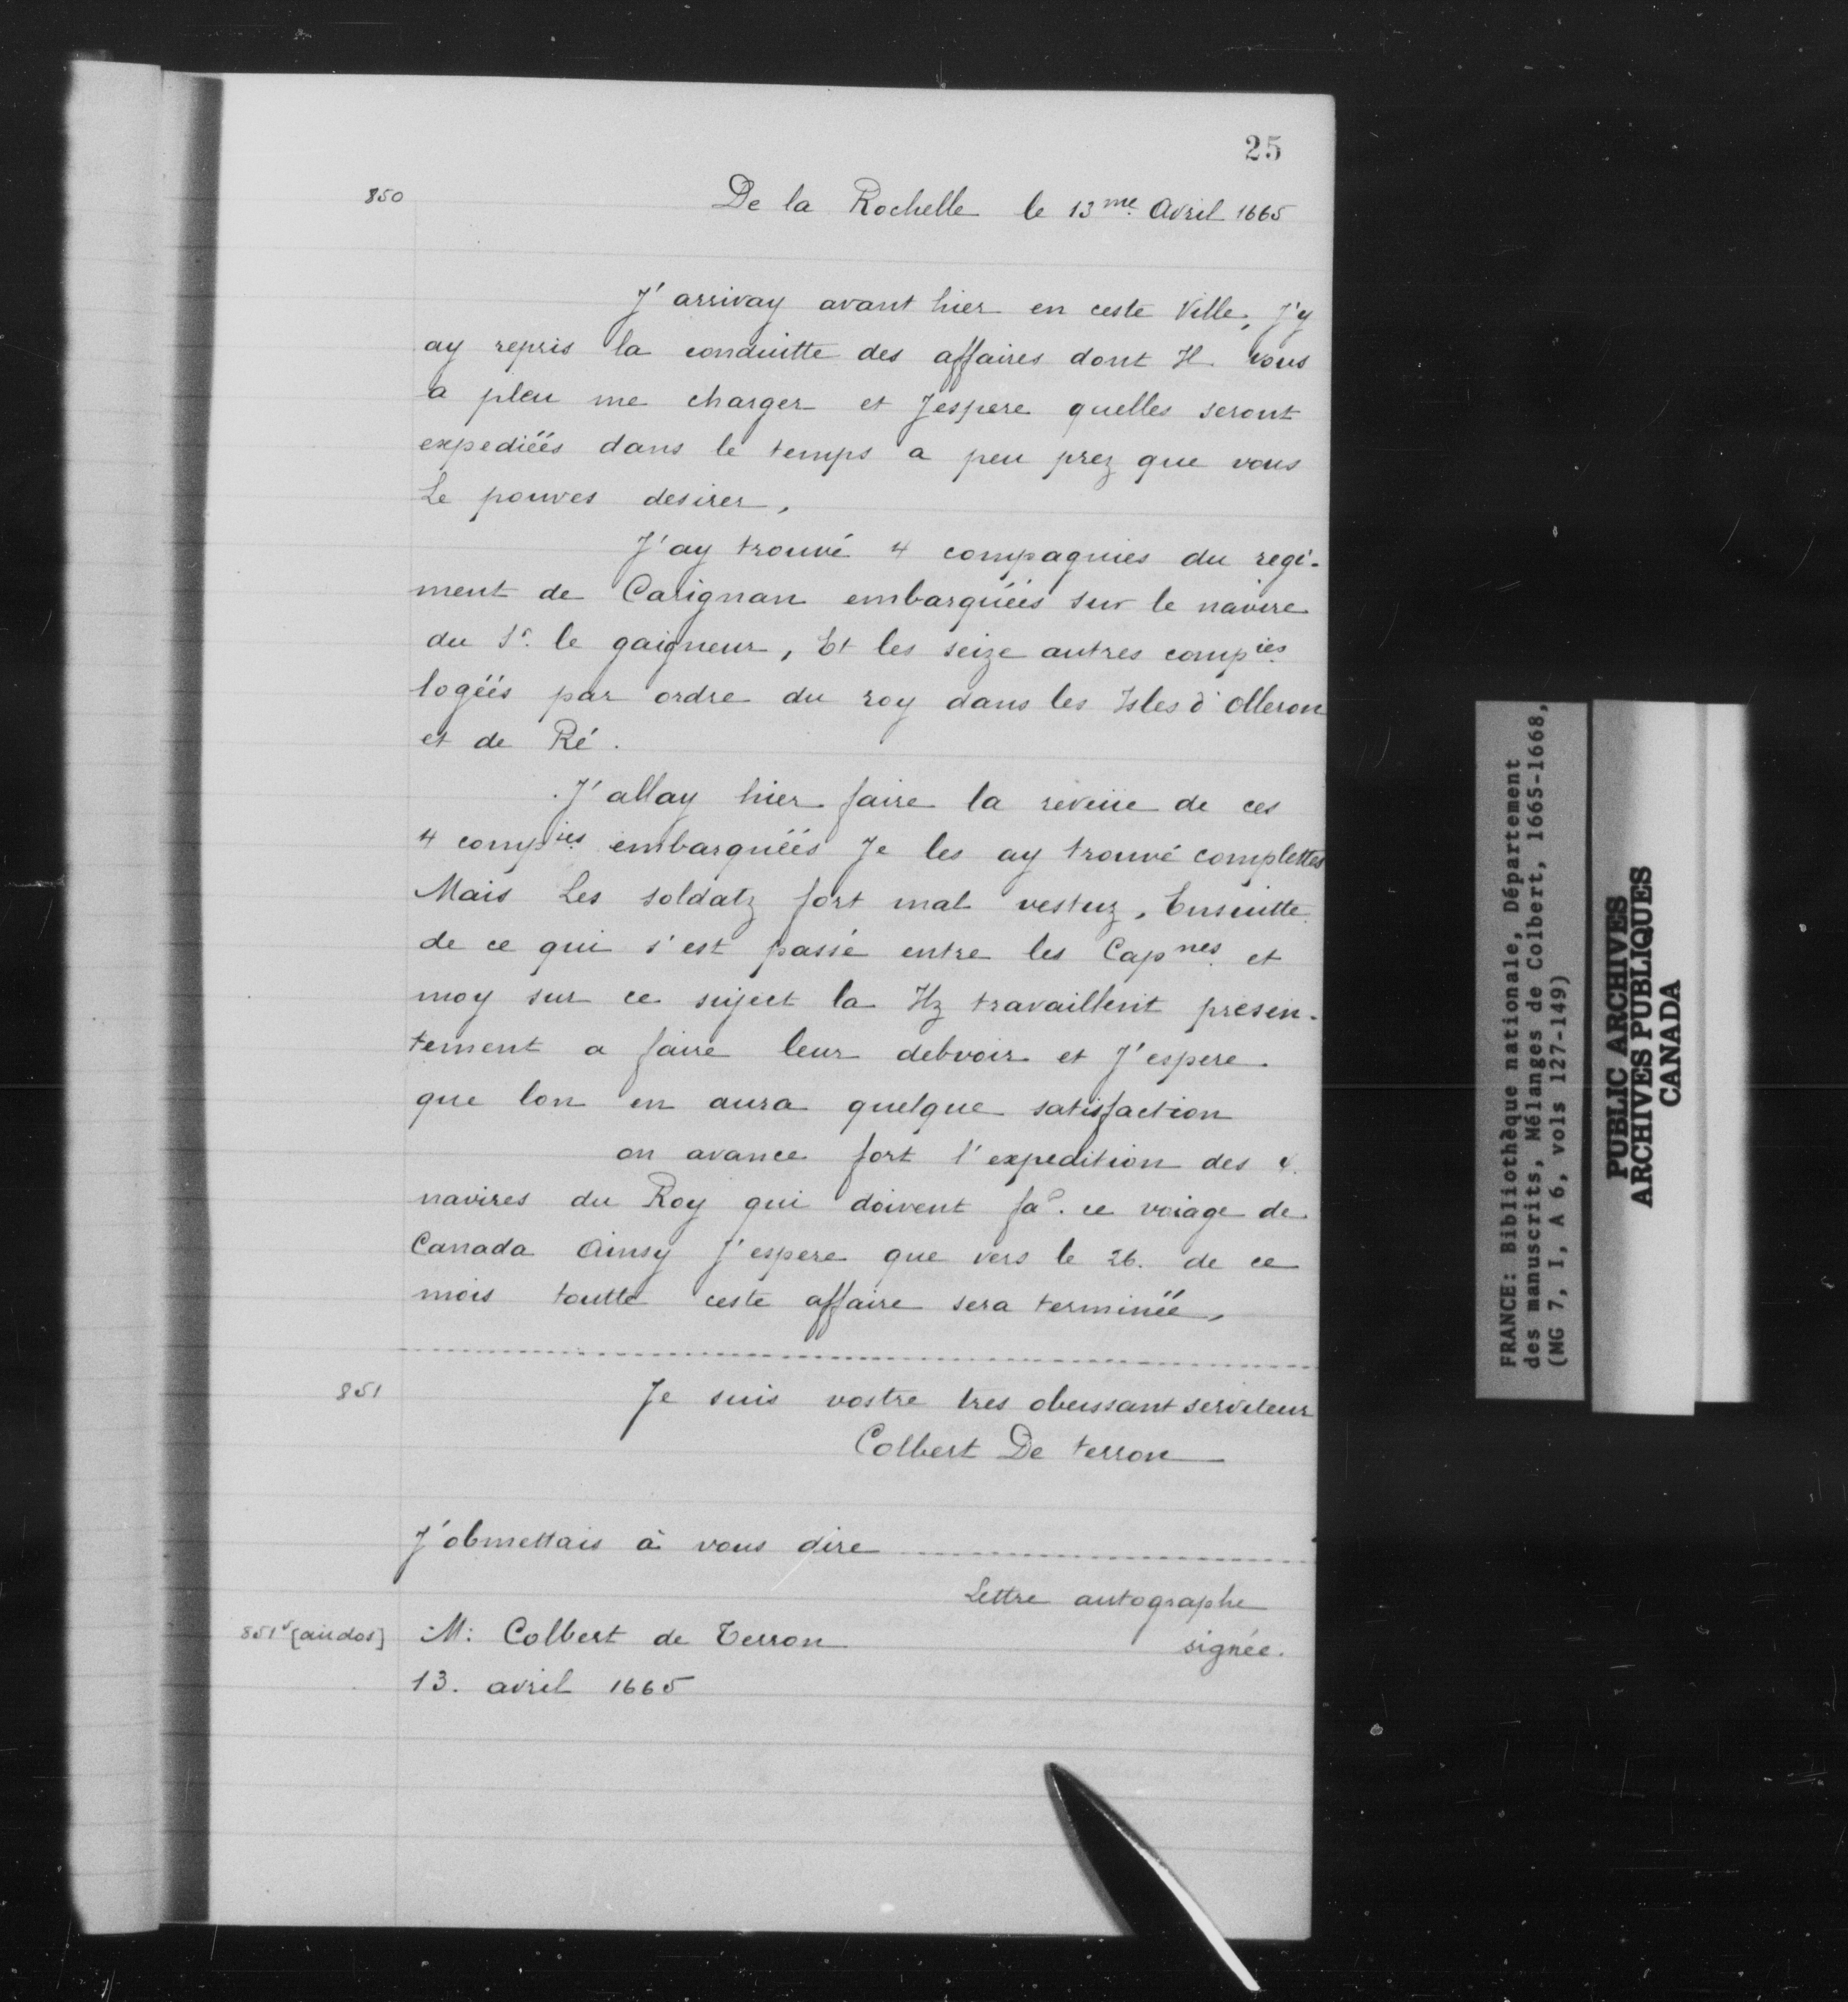 25
850
De la Rochelle le 13me. Avril 1665
J'arrivay avant hier en ceste Ville, J'y
ay repris la conduitte des affaires dont Il vous
a pleu me charger et Jespere quelles seront
expediéés dans le temps a peu prez que vous
Le pouves desirer,
J'ay trouvé 4 compagnies du regi-
ment de Carignan embarquéés sur le navire
du Sr. le gaigneur, Et les seize autres compies.
logéés par ordre du roy dans les Isles d'Olleron
et de Ré.
J'allay hier faire la reveüe de ces
4 compies. embarquéés Je les ay trouvé complettes
Mais Les soldatz fort mal vestuz, Ensuitte
de ce qui s'est passé entre les Capnes. et
moy sur ce suject la Ilz travaillent presen-
tement a faire leur debvoir et J'espere
que lon en aura quelque satisfaction
on avance fort l'expedition des 4.
navires du Roy qui doivent fae. ce voiage de
Canada Ainsy J'espere que vers le 26. de ce
mois toutte ceste affaire sera terminéé,
851
Je suis vostre tres obeissant serviteur
Colbert De terron
J'obmettais à vous dire
Lettre autographe
signée.
851v [au dos]
M: Colbert de Terron
13. avril 1665
FRANCE: Bibliothèque nationale, Département
des manuscrits, Mélanges de Colbert, 1665-1668,
(MG 7, I, A 6, vols 127-149)
PUBLIC ARCHIVES
ARCHIVES PUBLIQUES
CANADA